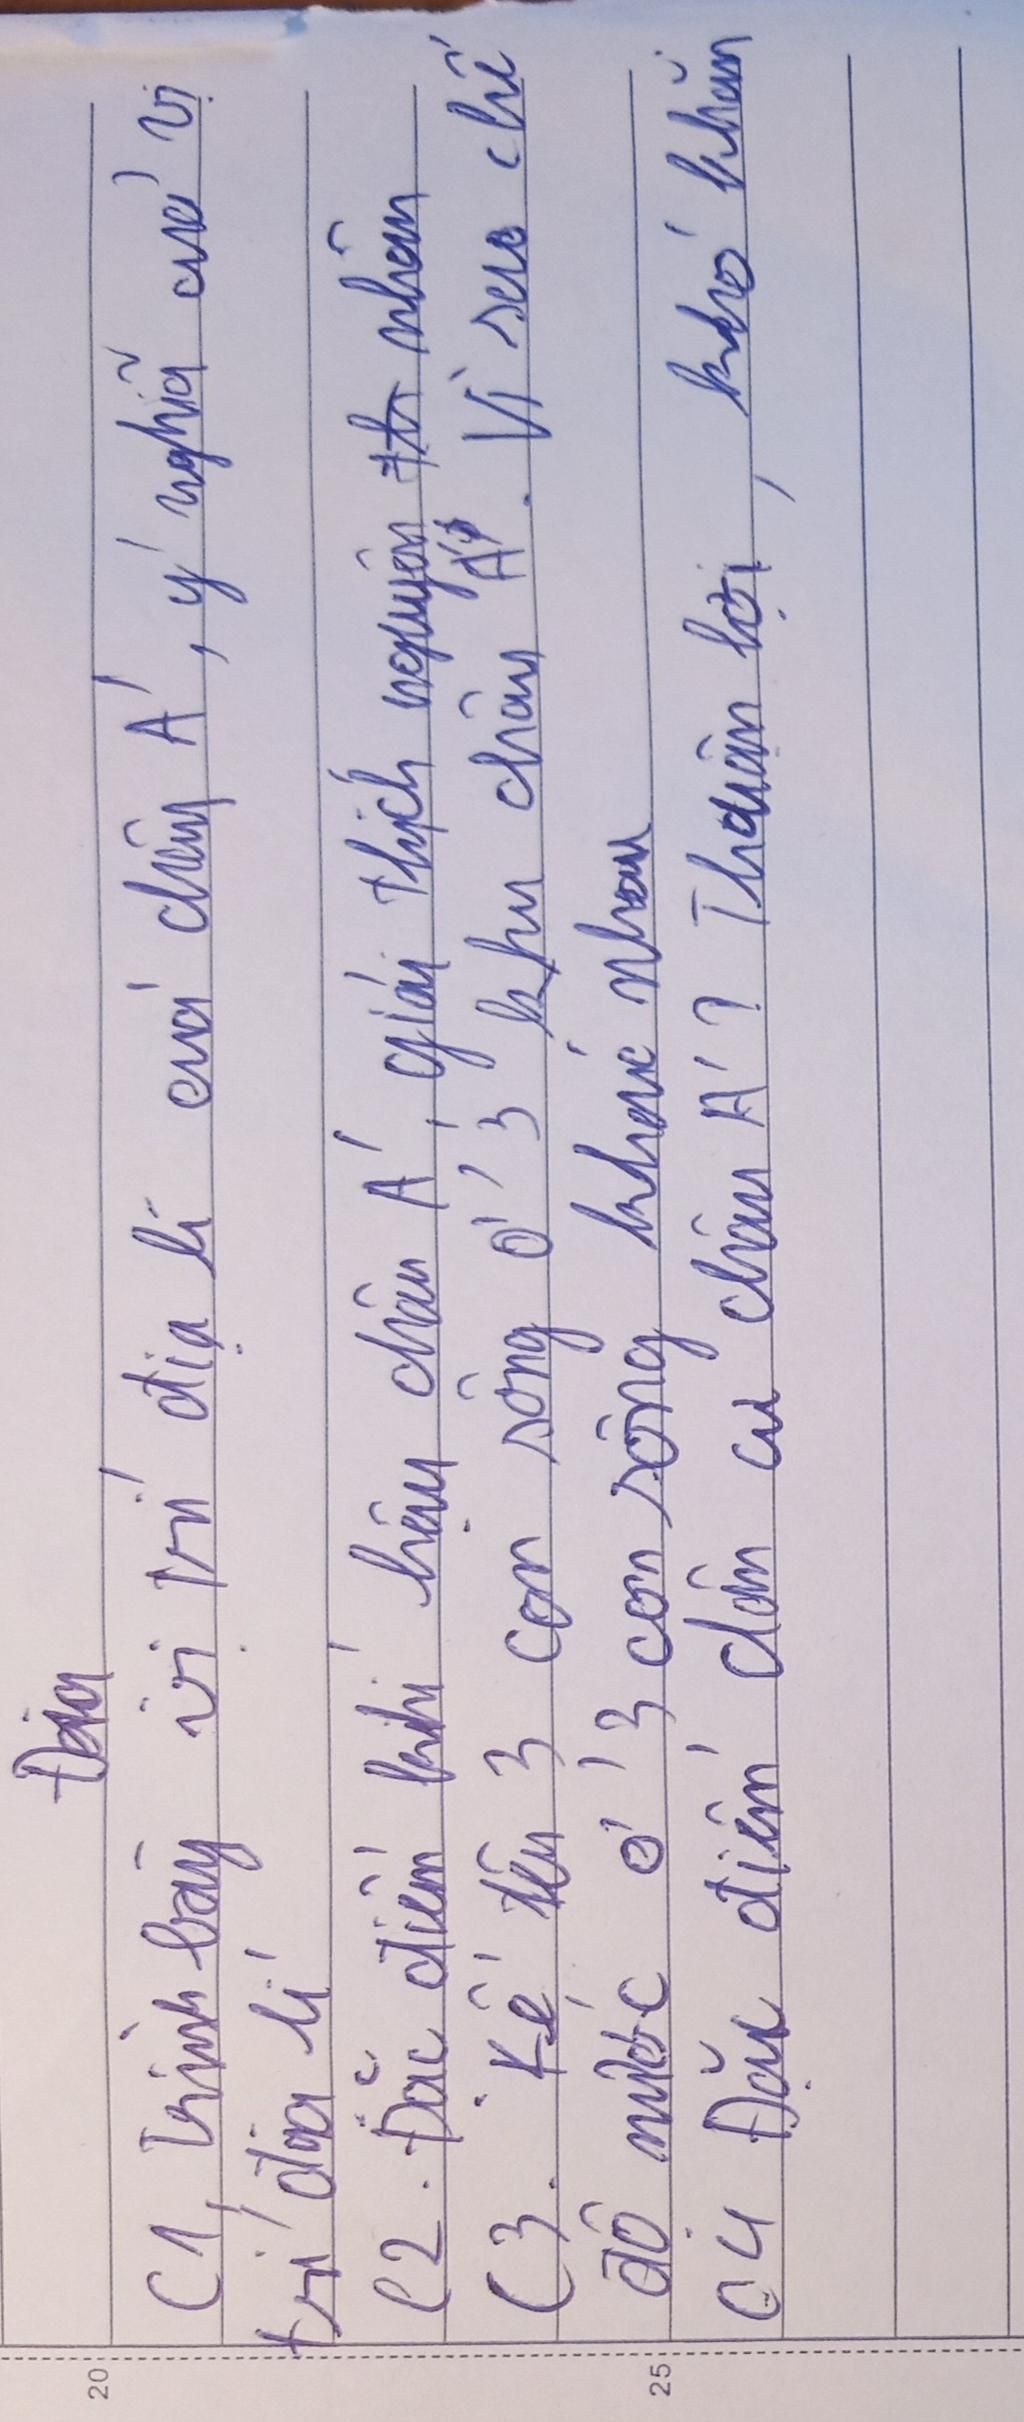 Địa
C1, Trình bày vị trí địa lí của châu Á, ý nghĩa của vị
trí địa lí
C2. Đặc điểm khí hậu châu Á, giải thích nguyên nhân
C3. Kể tên 3 con sông ở 3 khu châu Á. Vì sao chế
độ nước ở 3 con sông khác nhau
C4 Đặc điểm dân cư châu Á? Thuận lợi, khó khăn
20
25